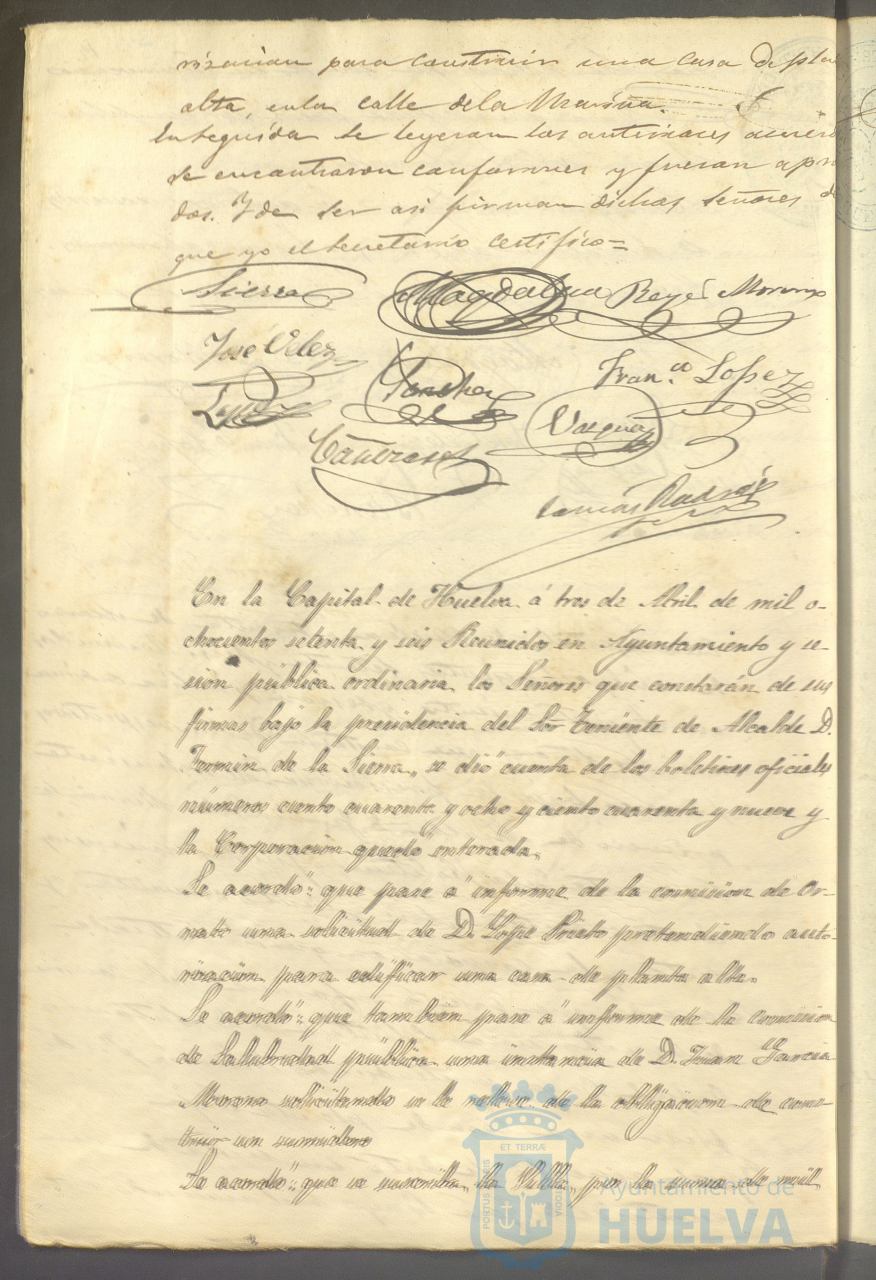 rizacion para construir una casa de plan
alta, en la calle de la Marina.
En seguida se leyeron los anteriores acuer
se encontraron conformes y fueron apro
dos. Y de ser asi firman dichos señores de
que yo el Secretario certifico=
Sierra Magdalena Reyes Moreno
José Velez
Lopez Sanchez Fran.co Lopez
Vazquez
Cañizares
Tomás
En la Capital de Huelva á tres de Abril de mil o-
chocientos setenta y seis Reunidos en Ayuntamiento y se-
sión pública ordinaria los Señores que constarán de sus
firmas bajo la presidencia del Sor Teniente de Alcalde D.
Fermin de la Sierra, se dió cuenta de los boletines oficiales
números ciento cuarenta y ocho y ciento cuarenta y nueve y
la Corporación quedó enterada.
Se acordó: que pase á informe de la comisión de Or-
nato una solicitud de D. Lope Prieto pretendiendo auto-
rización para edificar una casa de planta alta.
Se acordó: que tambien pase á informe de la Comisión
de Salubridad pública una instancia de D. Juan Garcia
Moreno solicitando se le releve de la obligacion de cons-
truir un sumidero
Se acordó: que se suscriba, la por la suma de mil
ET TERRÆ
PORTUS MARIS
CUSTODIA
Ayuntamiento de
HUELVA